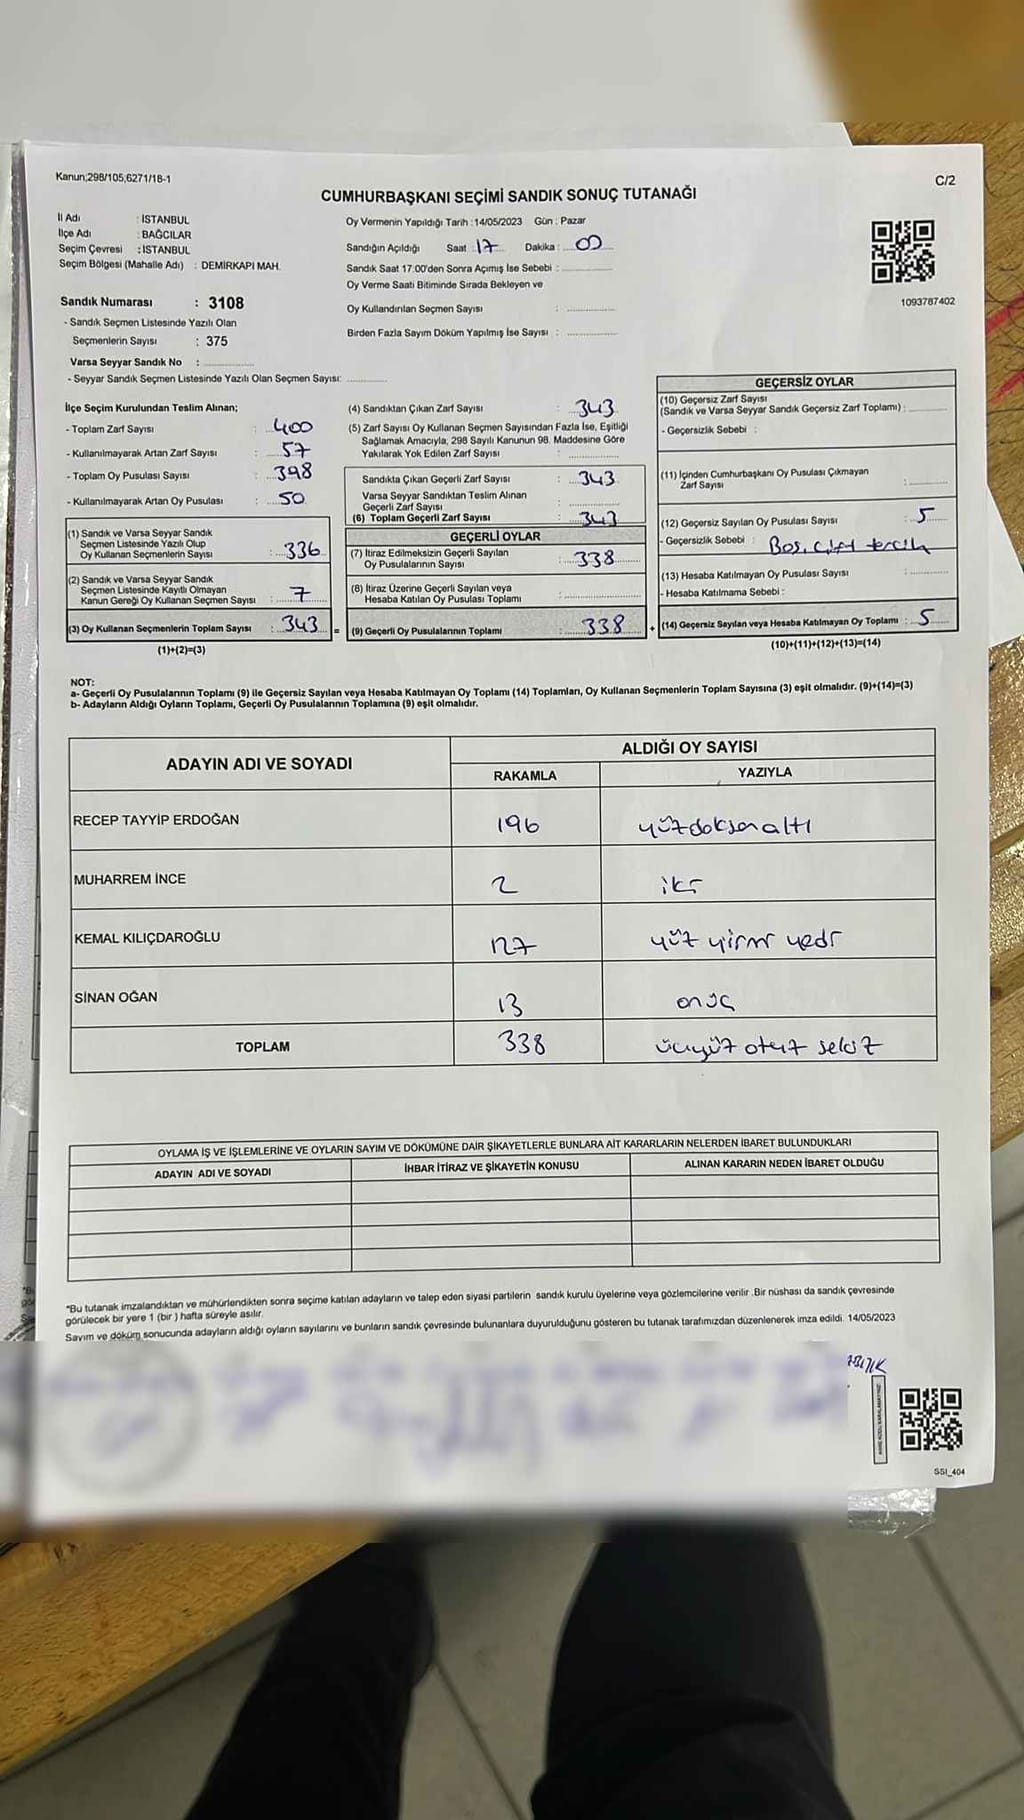 Kanun;298/105,6271/18-1
C/2
CUMHURBAŞKANI SEÇİMİ SANDIK SONUÇ TUTANAĞI
İl Adı : İSTANBUL
İlçe Adı : BAĞCILAR
Seçim Çevresi : İSTANBUL
Seçim Bölgesi (Mahalle Adı) : DEMİRKAPI MAH.
Oy Vermenin Yapıldığı Tarih : 14/05/2023 Gün : Pazar
Sandığın Açıldığı Saat : 17 Dakika : 00
Sandık Saat 17:00'den Sonra Açımış İse Sebebi :
Oy Verme Saati Bitiminde Sırada Bekleyen ve
Oy Kullandırılan Seçmen Sayısı :
Birden Fazla Sayım Döküm Yapılmış İse Sayısı :
1093787402
Sandık Numarası : 3108
- Sandık Seçmen Listesinde Yazılı Olan
Seçmenlerin Sayısı : 375
Varsa Seyyar Sandık No :
- Seyyar Sandık Seçmen Listesinde Yazılı Olan Seçmen Sayısı:
İlçe Seçim Kurulundan Teslim Alınan;
- Toplam Zarf Sayısı : 400
- Kullanılmayarak Artan Zarf Sayısı : 57
- Toplam Oy Pusulası Sayısı : 398
- Kullanılmayarak Artan Oy Pusulası : 50
(1) Sandık ve Varsa Seyyar Sandık
Seçmen Listesinde Yazılı Olup
Oy Kullanan Seçmenlerin Sayısı : 336
(2) Sandık ve Varsa Seyyar Sandık
Seçmen Listesinde Kayıtlı Olmayan
Kanun Gereği Oy Kullanan Seçmen Sayısı : 7
(3) Oy Kullanan Seçmenlerin Toplam Sayısı : 343 =
(1)+(2)=(3)
(4) Sandıktan Çıkan Zarf Sayısı : 343
(5) Zarf Sayısı Oy Kullanan Seçmen Sayısından Fazla İse, Eşitliği
Sağlamak Amacıyla, 298 Sayılı Kanunun 98. Maddesine Göre
Yakılarak Yok Edilen Zarf Sayısı :
Sandıkta Çıkan Geçerli Zarf Sayısı : 343
Varsa Seyyar Sandıktan Teslim Alınan
Geçerli Zarf Sayısı :
(6) Toplam Geçerli Zarf Sayısı : 343
GEÇERLİ OYLAR
(7) İtiraz Edilmeksizin Geçerli Sayılan
Oy Pusulalarının Sayısı : 338
(8) İtiraz Üzerine Geçerli Sayılan veya
Hesaba Katılan Oy Pusulası Toplamı :
(9) Geçerli Oy Pusulalarının Toplamı : 338 +
GEÇERSİZ OYLAR
(10) Geçersiz Zarf Sayısı
(Sandık ve Varsa Seyyar Sandık Geçersiz Zarf Toplamı) :
- Geçersizlik Sebebi :
(11) İçinden Cumhurbaşkanı Oy Pusulası Çıkmayan
Zarf Sayısı :
(12) Geçersiz Sayılan Oy Pusulası Sayısı : 5
- Geçersizlik Sebebi : Boş, çift tercih
(13) Hesaba Katılmayan Oy Pusulası Sayısı :
- Hesaba Katılmama Sebebi :
(14) Geçersiz Sayılan veya Hesaba Katılmayan Oy Toplamı : 5
(10)+(11)+(12)+(13)=(14)
NOT:
a- Geçerli Oy Pusulalarının Toplamı (9) ile Geçersiz Sayılan veya Hesaba Katılmayan Oy Toplamı (14) Toplamları, Oy Kullanan Seçmenlerin Toplam Sayısına (3) eşit olmalıdır. (9)+(14)=(3)
b- Adayların Aldığı Oyların Toplamı, Geçerli Oy Pusulalarının Toplamına (9) eşit olmalıdır.
ADAYIN ADI VE SOYADI ALDIĞI OY SAYISI
RAKAMLA YAZIYLA
RECEP TAYYİP ERDOĞAN 196 yüzdoksanaltı
MUHARREM İNCE 2 iki
KEMAL KILIÇDAROĞLU 127 yüz yirmi yedi
SİNAN OĞAN 13 onüç
TOPLAM 338 üçyüz otuz sekiz
OYLAMA İŞ VE İŞLEMLERİNE VE OYLARIN SAYIM VE DÖKÜMÜNE DAİR ŞİKAYETLERLE BUNLARA AİT KARARLARIN NELERDEN İBARET BULUNDUKLARI
ADAYIN ADI VE SOYADI İHBAR İTİRAZ VE ŞİKAYETİN KONUSU ALINAN KARARIN NEDEN İBARET OLDUĞU
*Bu tutanak imzalandıktan ve mühürlendikten sonra seçime katılan adayların ve talep eden siyasi partilerin sandık kurulu üyelerine veya gözlemcilerine verilir .Bir nüshası da sandık çevresinde
görülecek bir yere 1 (bir ) hafta süreyle asılır.
Sayım ve döküm sonucunda adayların aldığı oyların sayılarını ve bunların sandık çevresinde bulunanlara duyurulduğunu gösteren bu tutanak tarafımızdan düzenlenerek imza edildi. 14/05/2023
SSİ_404